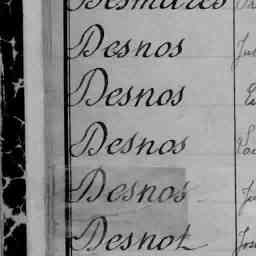 Desmares
Desnos
Desnos
Desnos
Desnos
Desnot